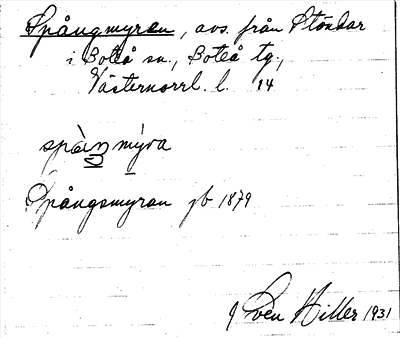 Spångmyren, avs. från Stöndar
i Boteå sn., Boteå tg.,
Västernorrl. l. 14
spàŋ mýra
Spångsmyran jb 1879
Sven Hiller 1931